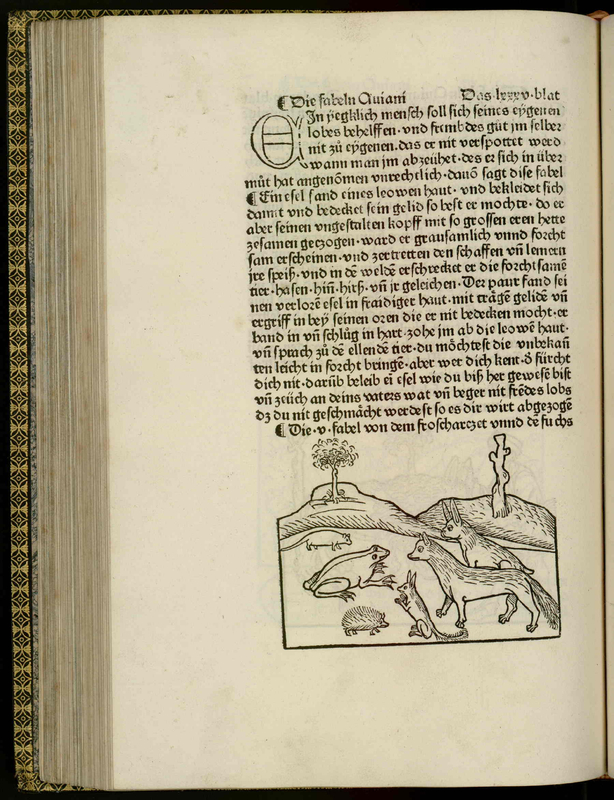 ¶ Die fabeln Auiani Das lxxxv·blat
EIn yegklich mensch soll sich seines eygenen
lobes behelffen·vnd frembdes gůt jm selber
nit zů eygenen.das er nit verspottet werd
wann man jm abzeühet·des er sich in über
můt hat angenōmen vnrechtlich·dauō sagt dise fabel
¶ Ein esel fand eines leowen haut· vnd bekleidet sich
damit vnd bedecket sein gelid so best er mochte·do er
aber seinen vngestalten kopff mit so grossen eren hette
zesamen gezogen·ward er grausamlich vnnd forcht
sam erscheinen·vnd zertretten den schaffen vn̄ lemern
jre speiß·vnd in dē weldē erschrecket er die forchtsamē
tier·hasen·hin̄·hirß·vn̄ jr geleichen·Der paur fand sei
nen verlorē esel in fraidiger haut·mit trägē gelidē vn̄
ergriff in bey seinen oren die er nit bedecken mocht·er
band in vn̄ schlůg in hart·zohe jm ab die leowē haut·
vn̄ sprach zů dē ellendē tier·du möchtest die vnbekan̄
ten leicht in forcht bringē·aber wer dich kent·d̄ fürcht
dich nit·darūb beleib ei esel wie du biß her gewesē bist
vn̄ zeüch an deins vaters wat vn̄ beger nit frēdes lobs
dz du nit geschmächt werdest so es dir wirt abgezogē
¶ Die·v·fabel von dem froscharczet vnnd dē fuchs